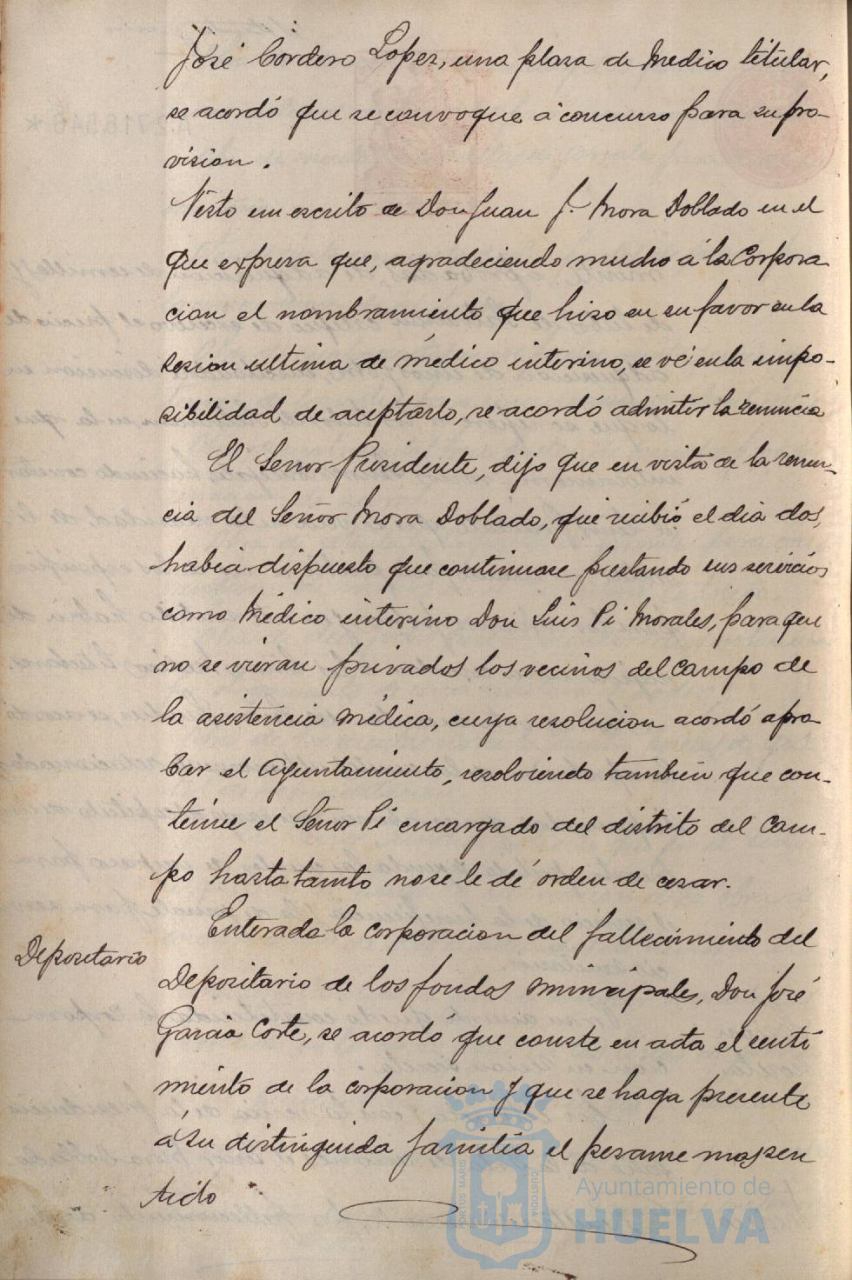 José Cordero Lopez, una plaza de Medico titular,
se acordó que se convoque á concurso para su pro-
vision.
Visto un escrito de Don Juan J. Mora Doblado en el
que expresa que, agradeciendo mucho á la Corpora
cion el nombramiento que hizo en su favor en la
sesion ultima de médico interino, se vé en la impo-
sibilidad de aceptarlo, se acordó admitir la renuncia
El Señor Presidente, dijo que en vista de la renun-
cia del Señor Mora Doblado, que recibió el dia dos,
habia dispuesto que continuase prestando sus servicios
como Médico interino Don Luis Pi Morales, para que
no se vieran privados los vecinos del campo de
la asistencia médica, cuya resolucion acordó apro
bar el Ayuntamiento, resolviendo tambien que con-
tinue el Señor Pi encargado del distrito del Cam-
po hasta tanto no se le dé orden de cesar.
Depositario
Enterada la corporacion del fallecimiento del
Depositario de los fondos municipales, Don José
Garcia Corte, se acordó que conste en acta el senti
miento de la corporacion y que se haga presente
á su distinguida familia el pesame mas sen
tido
Ayuntamiento de
HUELVA